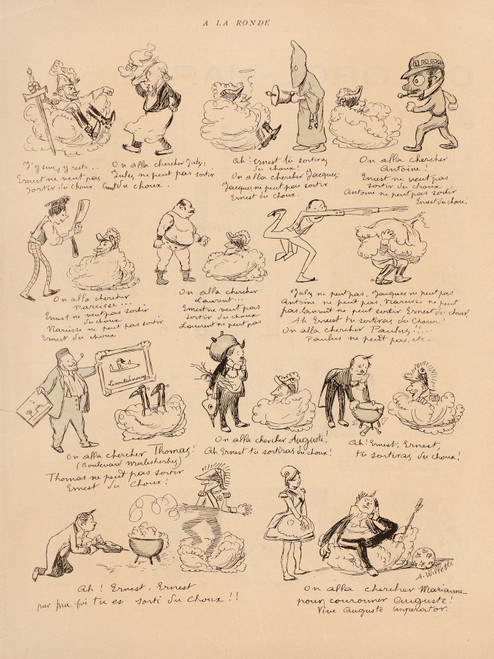 A LA RONDE
J'y suis, j'y reste..
Ernest ne veut pas
sortir du choux
On alla chercher July,
July ne peut pas sortir
Ernest du choux.
Ah! Ernest tu sortiras
du choux.
On alla chercher Jacques;
Jacques ne peut pas sortir
Ernest du choux.
On alla chercher
Antoine!
Ernest ne veut pas
sortir du choux
Antoine ne peut pas sortir
Ernest du choux.
On alla chercher
Narcisse...
Ernest ne veut pas sortir
du choux
Narcisse ne peut pas sortir
Ernest du choux
On alla chercher
Laurent...
Ernest ne veut pas
sortir du choux
Laurent ne peut pas
July ne peut pas, Jacques ne peut pas
Antoine ne peut pas, Narcisse ne peut
pas, Laurent ne peut sortir Ernest du choux
Ah Ernest tu sortiras du choux!
On alla chercher Paulus!!..
Paulus ne peut pas, etc.
On alla chercher Thomas!
(Boulevard Malesherbes)
Thomas ne peut pas sortir
Ernest du choux!
On alla chercher Auguste!
Ah Ernest tu sortiras du choux!
Ah! Ernest, Ernest,
tu sortiras du choux!
Ah! Ernest, Ernest
par feu foi tu es sorti du choux!!
On alla chercher Marianne
pour couronner Auguste!
Vive Auguste imperator.
A. Willette